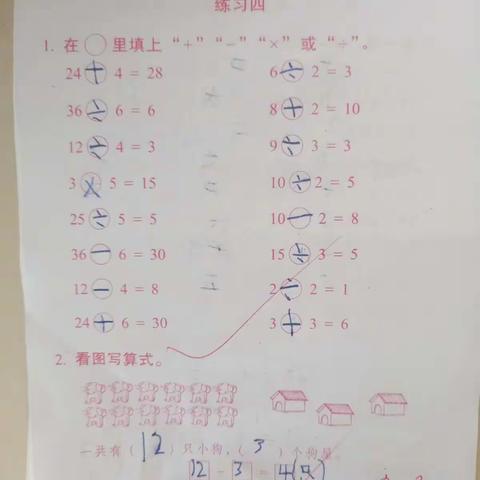 练习四
1. 在○里填上“+”“−”“×”或“÷”。
24 + 4 = 28 6 ÷ 2 = 3
36 ÷ 6 = 6 8 + 2 = 10
12 ÷ 4 = 3 9 ÷ 3 = 3
3 × 5 = 15 10 ÷ 2 = 5
25 ÷ 5 = 5 10 − 2 = 8
36 − 6 = 30 15 ÷ 3 = 5
12 − 4 = 8 2 ÷ 2 = 1
24 + 6 = 30 3 + 3 = 6
2. 看图写算式。
一共有（12）只小狗,（3）个狗屋
12 − 3 = 4